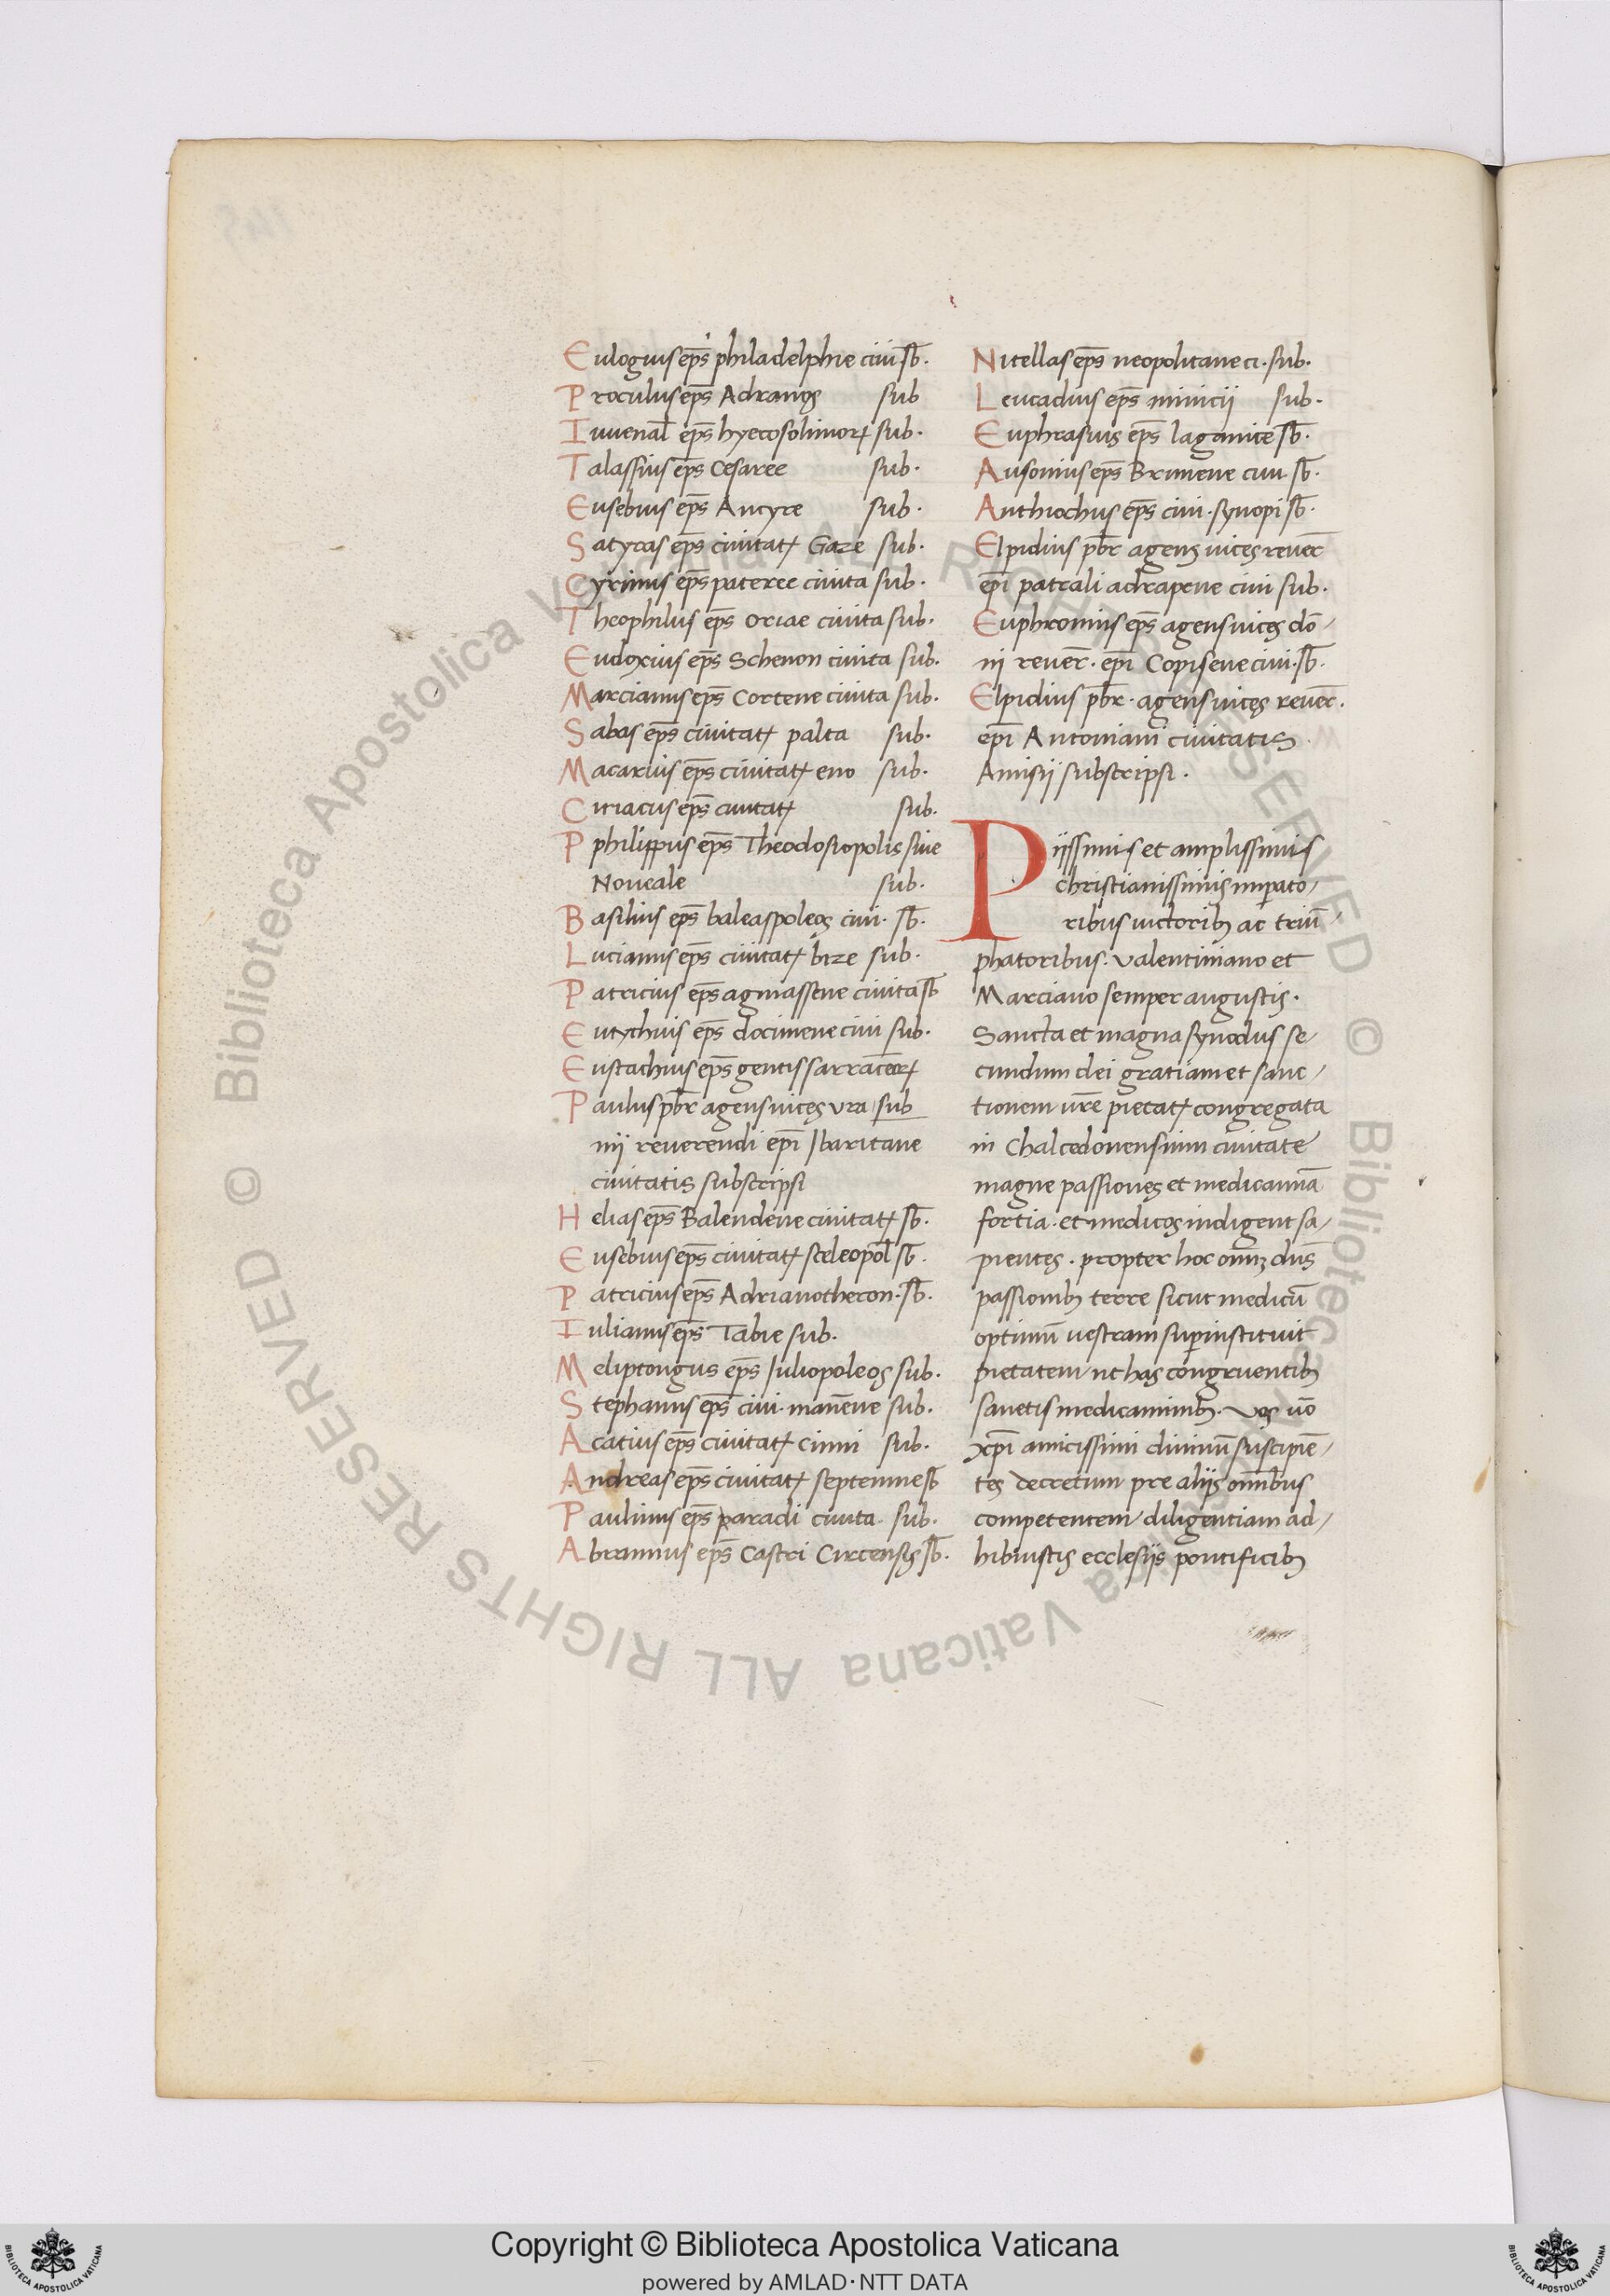 Eulogius ep̄s philadelphie ciui sb̄.
Proculus ep̄s Adranos sub
Iuuenal̄ ep̄s hyerosolimorꝝ sub.
Talassius ep̄s Cesaree sub.
Eusebius ep̄s Ancyre sub.
Satyras ep̄s ciuitatꝭ Gaze sub.
Cyrinus ep̄s pateree ciuita sub.
Theophilus ep̄s oriae ciuita sub.
Eudoxius ep̄s Schenon ciuita sub.
Marcianus ep̄s Cortene ciuita sub.
Sabas ep̄s ciuitatꝭ palta sub.
Macarius ep̄s ciuitatꝭ eno sub.
Ciriacus ep̄s ciuitatꝭ sub.
P philippus ep̄s Theodosiopolis siue
Noueale sub.
Basilius ep̄s baleaspoleos ciui. sb̄.
Lucianus ep̄s ciuitatꝭ bize sub.
Patricius ep̄s agmassene ciuita sb̄
Eutychius ep̄s docimene ciui sub.
Eustachius ep̄s gentis sarracēorꝝ
Paulus pb̄r agens uices ura sub
nij reuerendi ep̄i Ibaritane
ciuitatis subscripsi
Helias ep̄s Balendene ciuitatꝭ sb̄.
Eusebius ep̄s ciuitatꝭ sceleopol̄ sb̄.
Patricius ep̄s Adrianotheron. sb̄.
Iulianus ep̄s Tabie sub.
Meliptongus ep̄s Iuliopoleos sub.
Stephanus ep̄s ciui. man̄ene sub.
Acatius ep̄s ciuitatꝭ cinni sub.
Andreas ep̄s ciuitatꝭ septenne sb̄
Paulinus ep̄s paradi ciuita. sub.
Abramius ep̄s Castri Circensis sb̄.
Nitellas ep̄s neopolitane ci. sub.
Leucadius ep̄s minicij sub.
Euphrasius ep̄s laganite sb̄.
Ausonius ep̄s Brimene ciui sb̄.
Anthiochus ep̄s ciui. synopi sb̄.
Elpidius pb̄r agens uices reuer̄
ep̄i patrali adrapene ciui sub.
Euphronius ep̄s agens uices do᷒/
nj reuer̄. ep̄i Copisene ciui. sb̄.
Elpidius pb̄r. agens uices reuer̄.
ep̄i Antoniani ciuitatis
Amisij subscripsi.
Piissimis et amplissimis
christianissimis imp̄ato/
ribus uictoribꝫ ac triū/
phatoribus. Valentiniano et
Marciano semper augustis.
Sancta et magna synodus se/
cundum dei gratiam et sanc/
tionem ur̄e pietatꝭ congregata
in Chalcedonensium ciuitate
magne passiones et medicamina᷒
fortia. et medicos indigent sa/
pientes. propter hoc om̄iꝫ dn̄s
passionibꝫ terre sicut medicū
optimū uestram sup̄instituit
pietatem ut has congruentibꝫ
sanetis medicaminibꝫ. Vos ūo
xp̄i amicissimi diuinū suscipiē/
tes decretum pre alijs om̄ibus
competentem diligentiam ad/
hibuistis ecclesijs pontificibꝫ
Copyright © Biblioteca Apostolica Vaticana
powered by AMLAD·NTT DATA